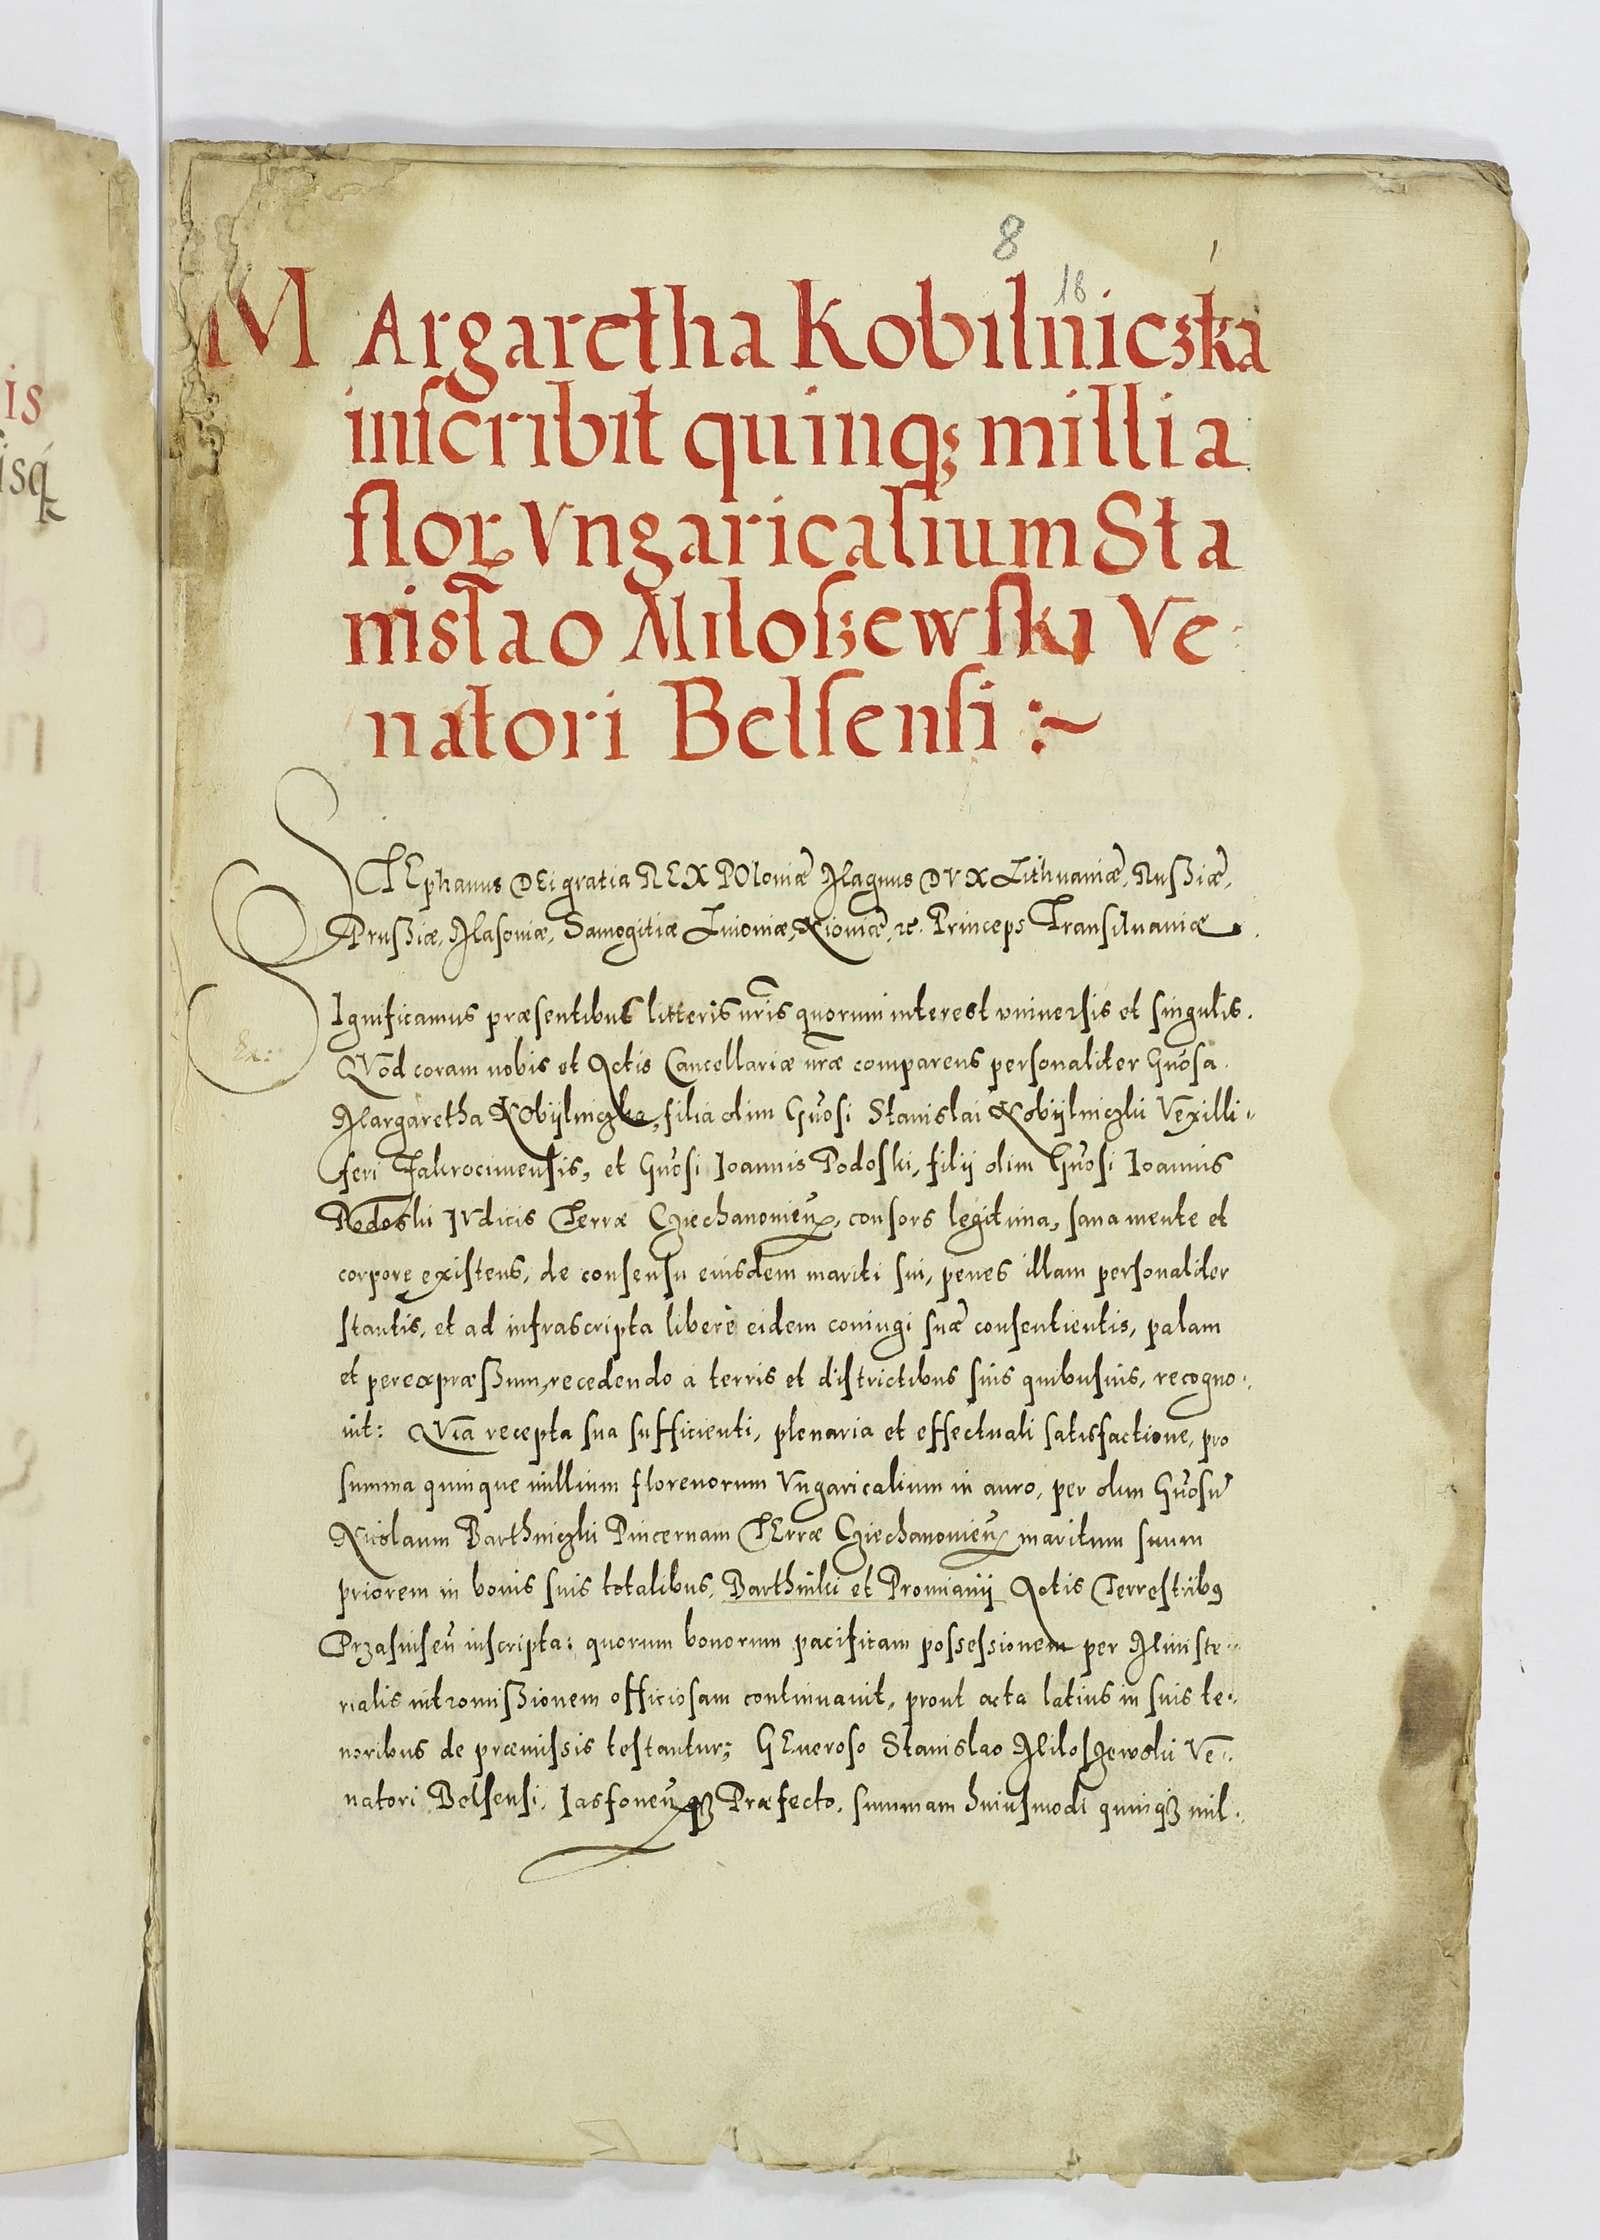 8
18
MArgaretha Kobilniczka
inscribit quinqꝫ millia
floꝝ Vngaricalium Sta
nislao Miloszewski Ve
natori Belsensi :~
STEphanus DEi gratia REX POloniæ Magnus DVX Lithuaniæ, Rußiæ,
Prußiæ, Masoniæ, Samogitiæ Liuoniæ, Kiouiæ, ꝛc. Princeps Transiluaniæ.
SIgnificamus præsentibus litteris nr̃is quorum interest vniuersis et singulis.
QVod coram nobis et Actis Cancellariæ nr̃æ comparens personaliter Gn̄osa
Margaretha KObijlniczka, filia olim Gn̄osi Stanislai Kobijlniczki Vexilli-
feri Zakrocimensis, et Gn̄osi Ioannis Podoski, filij olim Gn̄osi Ioannis
Podoski IVdicis Terræ Cziechanovieñ, consors legitima, sana mente et
corpore existens, de consensu eiusdem mariti sui, penes illam personaliter
stantis, et ad infrascripta liberè eidem coniugi suæ consentientis, palam
et perexpræßum, recedendo a terris et districtibus suis quibusuis, recogno-
uit: QVia recepta sua sufficienti, plenaria et effectuali satisfactione, pro
summa quinque millium florenorum Vngaricalium in auro, per olim Gn̄osū
Nicolaum Barthniczki Pincernam TErræ Cziechanovieñ maritum suum
priorem in bonis suis totalibus, Barthniki et Promianij Actis Terrestribꝰ
Przasniseñ inscripta: quorum bonorum pacificam possessionem per Ministe-
rialis intromißionem officiosam continuauit, prout acta latius in suis te-
noribus de præmissis testantur; GEneroso Stanislao Miloszewski Ve-
natori Belsensi, Iasfoneñqꝫ Præfecto, summam huiusmodi quinqꝫ mil-